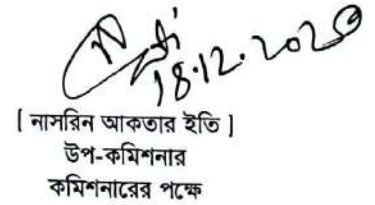 18.12.2020
[ নাসরিন আকতার ইতি ]
উপ-কমিশনার
কমিশনারের পক্ষে